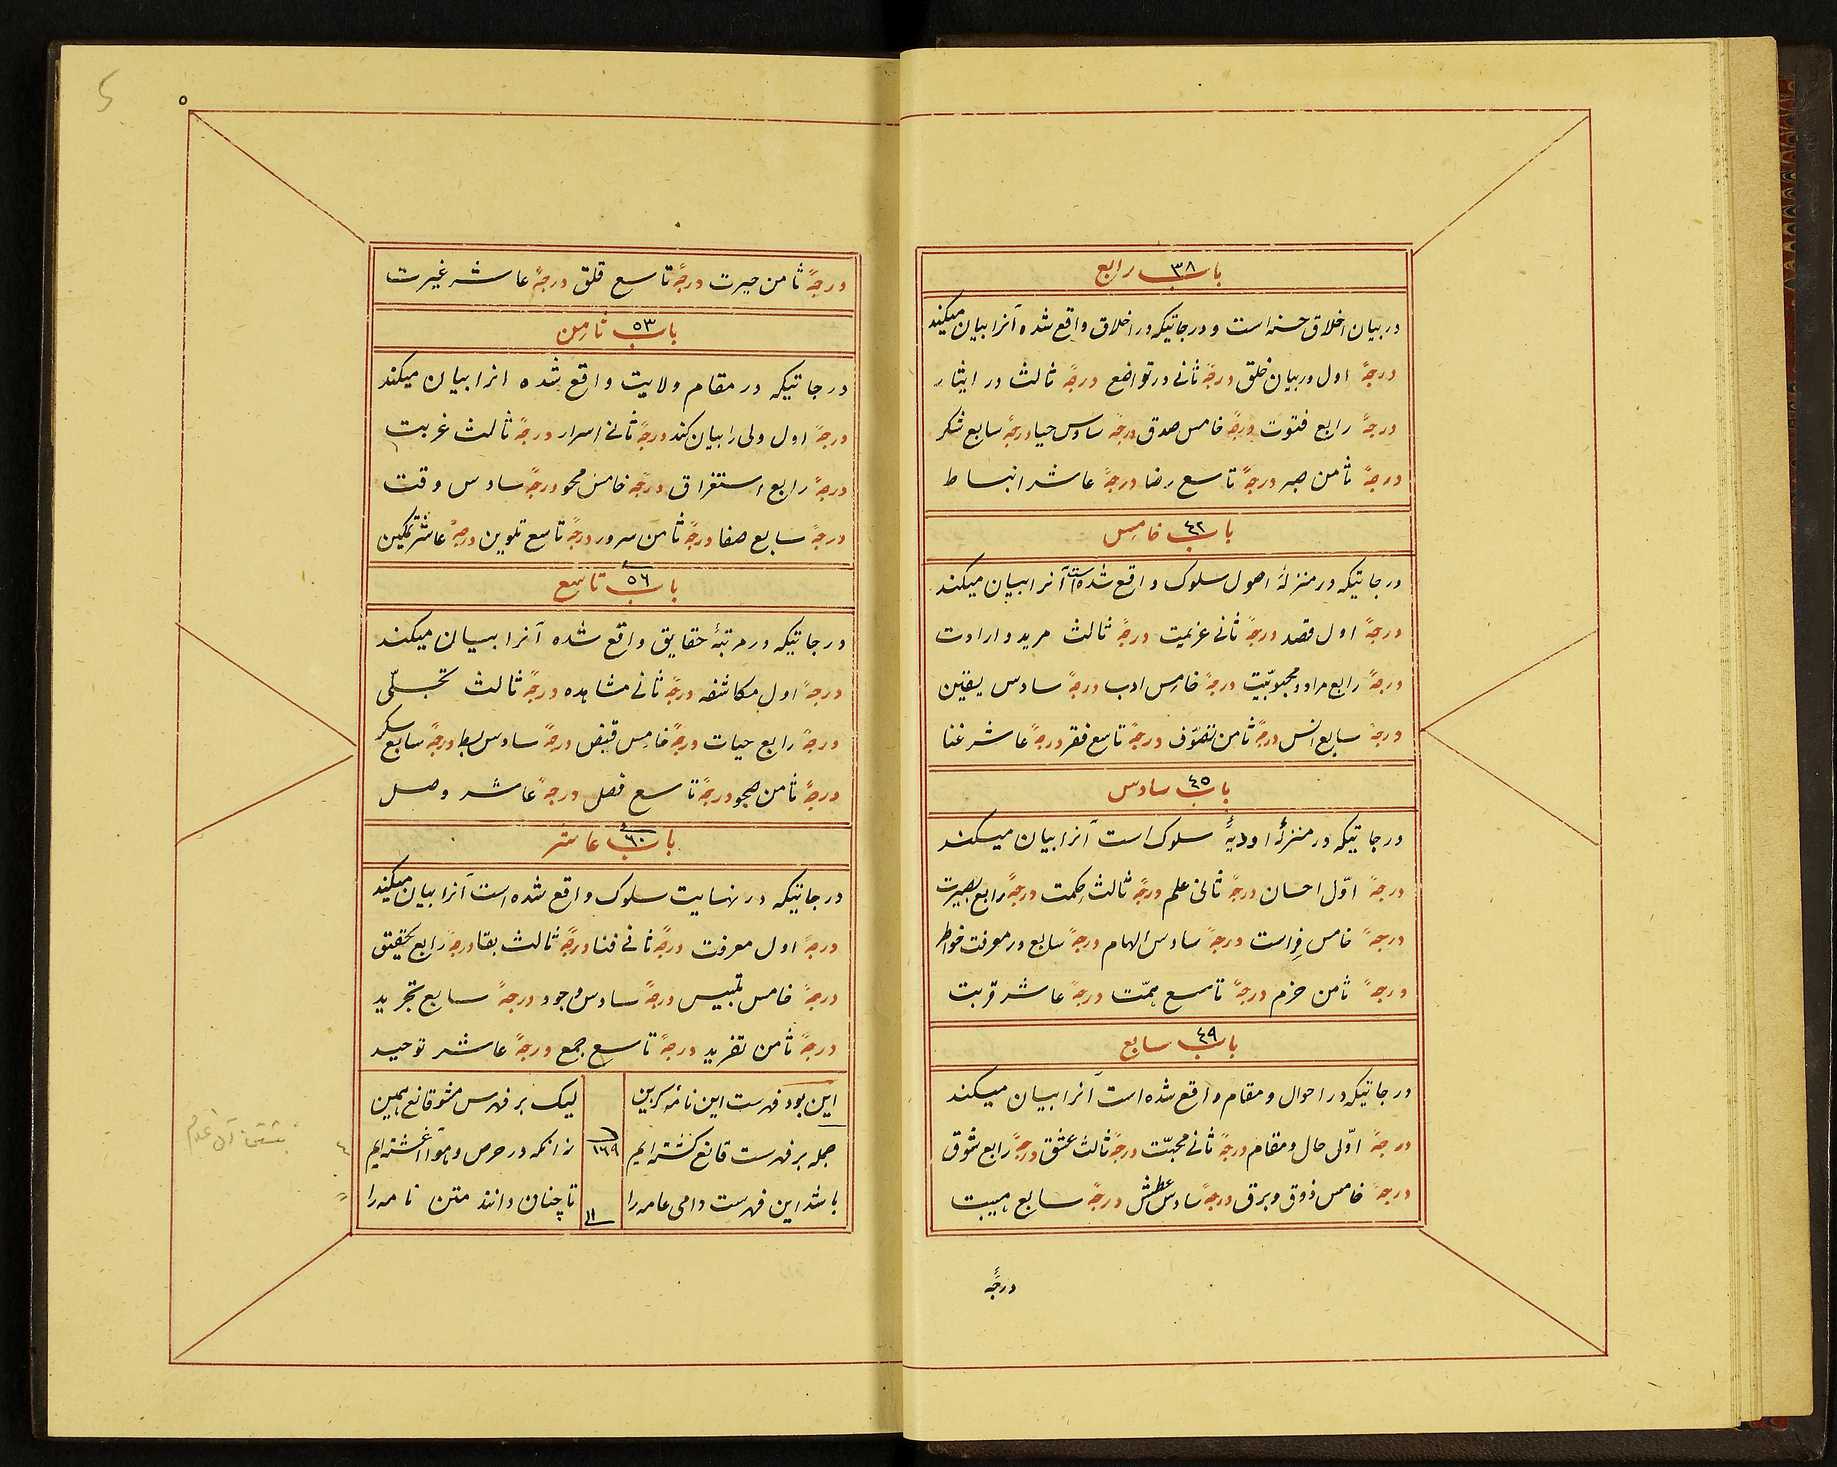 باب ٣٨ رابع
در بیان اخلاق حسنه است و درجاتیکه در اخلاق واقع شده آنرا بیان میکند
درجهٔ اول در بیان خلق درجهٔ ثانی در تواضع درجهٔ ثالث در ایثار
درجهٔ رابع فتوت درجهٔ خامس صدق درجهٔ سادس حیا درجهٔ سابع شکر
درجهٔ ثامن صبر درجهٔ تاسع رضا درجهٔ عاشر انبساط
باب ٤٢ خامس
درجاتیکه در منزلهٔ اصول سلوک واقع شده است آنرا بیان میکند
درجهٔ اول قصد درجهٔ ثانی عزیمت درجهٔ ثالث مرید و ارادت
درجهٔ رابع مراد و محبوبیّت درجهٔ خامس ادب درجهٔ سادس یقین
درجهٔ سابع انس درجهٔ ثامن تصوّف درجهٔ تاسع فقر درجهٔ عاشر غنا
باب ٤٥ سادس
درجاتیکه در منزلهٔ اودیهٔ سلوک است آنرا بیان میکند
درجهٔ اوّل احسان درجهٔ ثانی علم درجهٔ ثالث حکمت درجهٔ رابع بصیرت
درجهٔ خامس فِراست درجهٔ سادس الهام درجهٔ سابع در معرفت خواطر
درجهٔ ثامن حزم درجهٔ تاسع همّت درجهٔ عاشر قربت
باب ٤٩ سابع
درجاتیکه در احوال و مقام واقع شده است آنرا بیان میکند
درجهٔ اوّلی حال و مقام درجهٔ ثانی محبّت درجهٔ ثالث عشق درجهٔ رابع شوق
درجهٔ خامس ذوق و برق درجهٔ سادس عطش درجهٔ سابع هیبت
درجهٔ
٥
5
درجهٔ ثامن حیرت درجهٔ تاسع قلق درجهٔ عاشر غیرت
باب ٥٣ ثامن
درجاتیکه در مقام ولایت واقع شده انرا بیان میکند
درجهٔ اول ولی را بیان کند درجهٔ ثانی اسرار درجهٔ ثالث غربت
درجهٔ رابع استغراق درجهٔ خامس محو درجهٔ سادس وقت
درجهٔ سابع صفا درجهٔ ثامن سرور درجهٔ تاسع تلوین درجهٔ عاشر تمکین
باب ٥٦ تاسع
درجاتیکه در مرتبهٔ حقایق واقع شده آنرا بیان میکند
درجهٔ اول مکاشفه درجهٔ ثانی مشاهده درجهٔ ثالث تجلّی
درجهٔ رابع حیات درجهٔ خامس قبض درجهٔ سادس بسط درجهٔ سابع سکر
درجهٔ ثامن صحو درجهٔ تاسع فصل درجهٔ عاشر وصل
باب ٦٠ عاشر
درجاتیکه در نهایت سلوک واقع شده است آنرا بیان میکند
درجهٔ اول معرفت درجهٔ ثانی فنا درجهٔ ثالث بقا درجهٔ رابع تحقیق
درجهٔ خامس تلبیس درجهٔ سادس وجود درجهٔ سابع تجرید
درجهٔ ثامن تفرید درجهٔ تاسع جمع درجهٔ عاشر توحید
این بود فهرست این نامه گزین لیک بر فهرس مشو قانع همین
جمله بر فهرست قانع گشته‌ایم ١٦٩ زانکه در حرص و هوا آغشته‌ایم
باشد این فهرست دامی عامه را ١١ تا چنان دانند متن نامه را